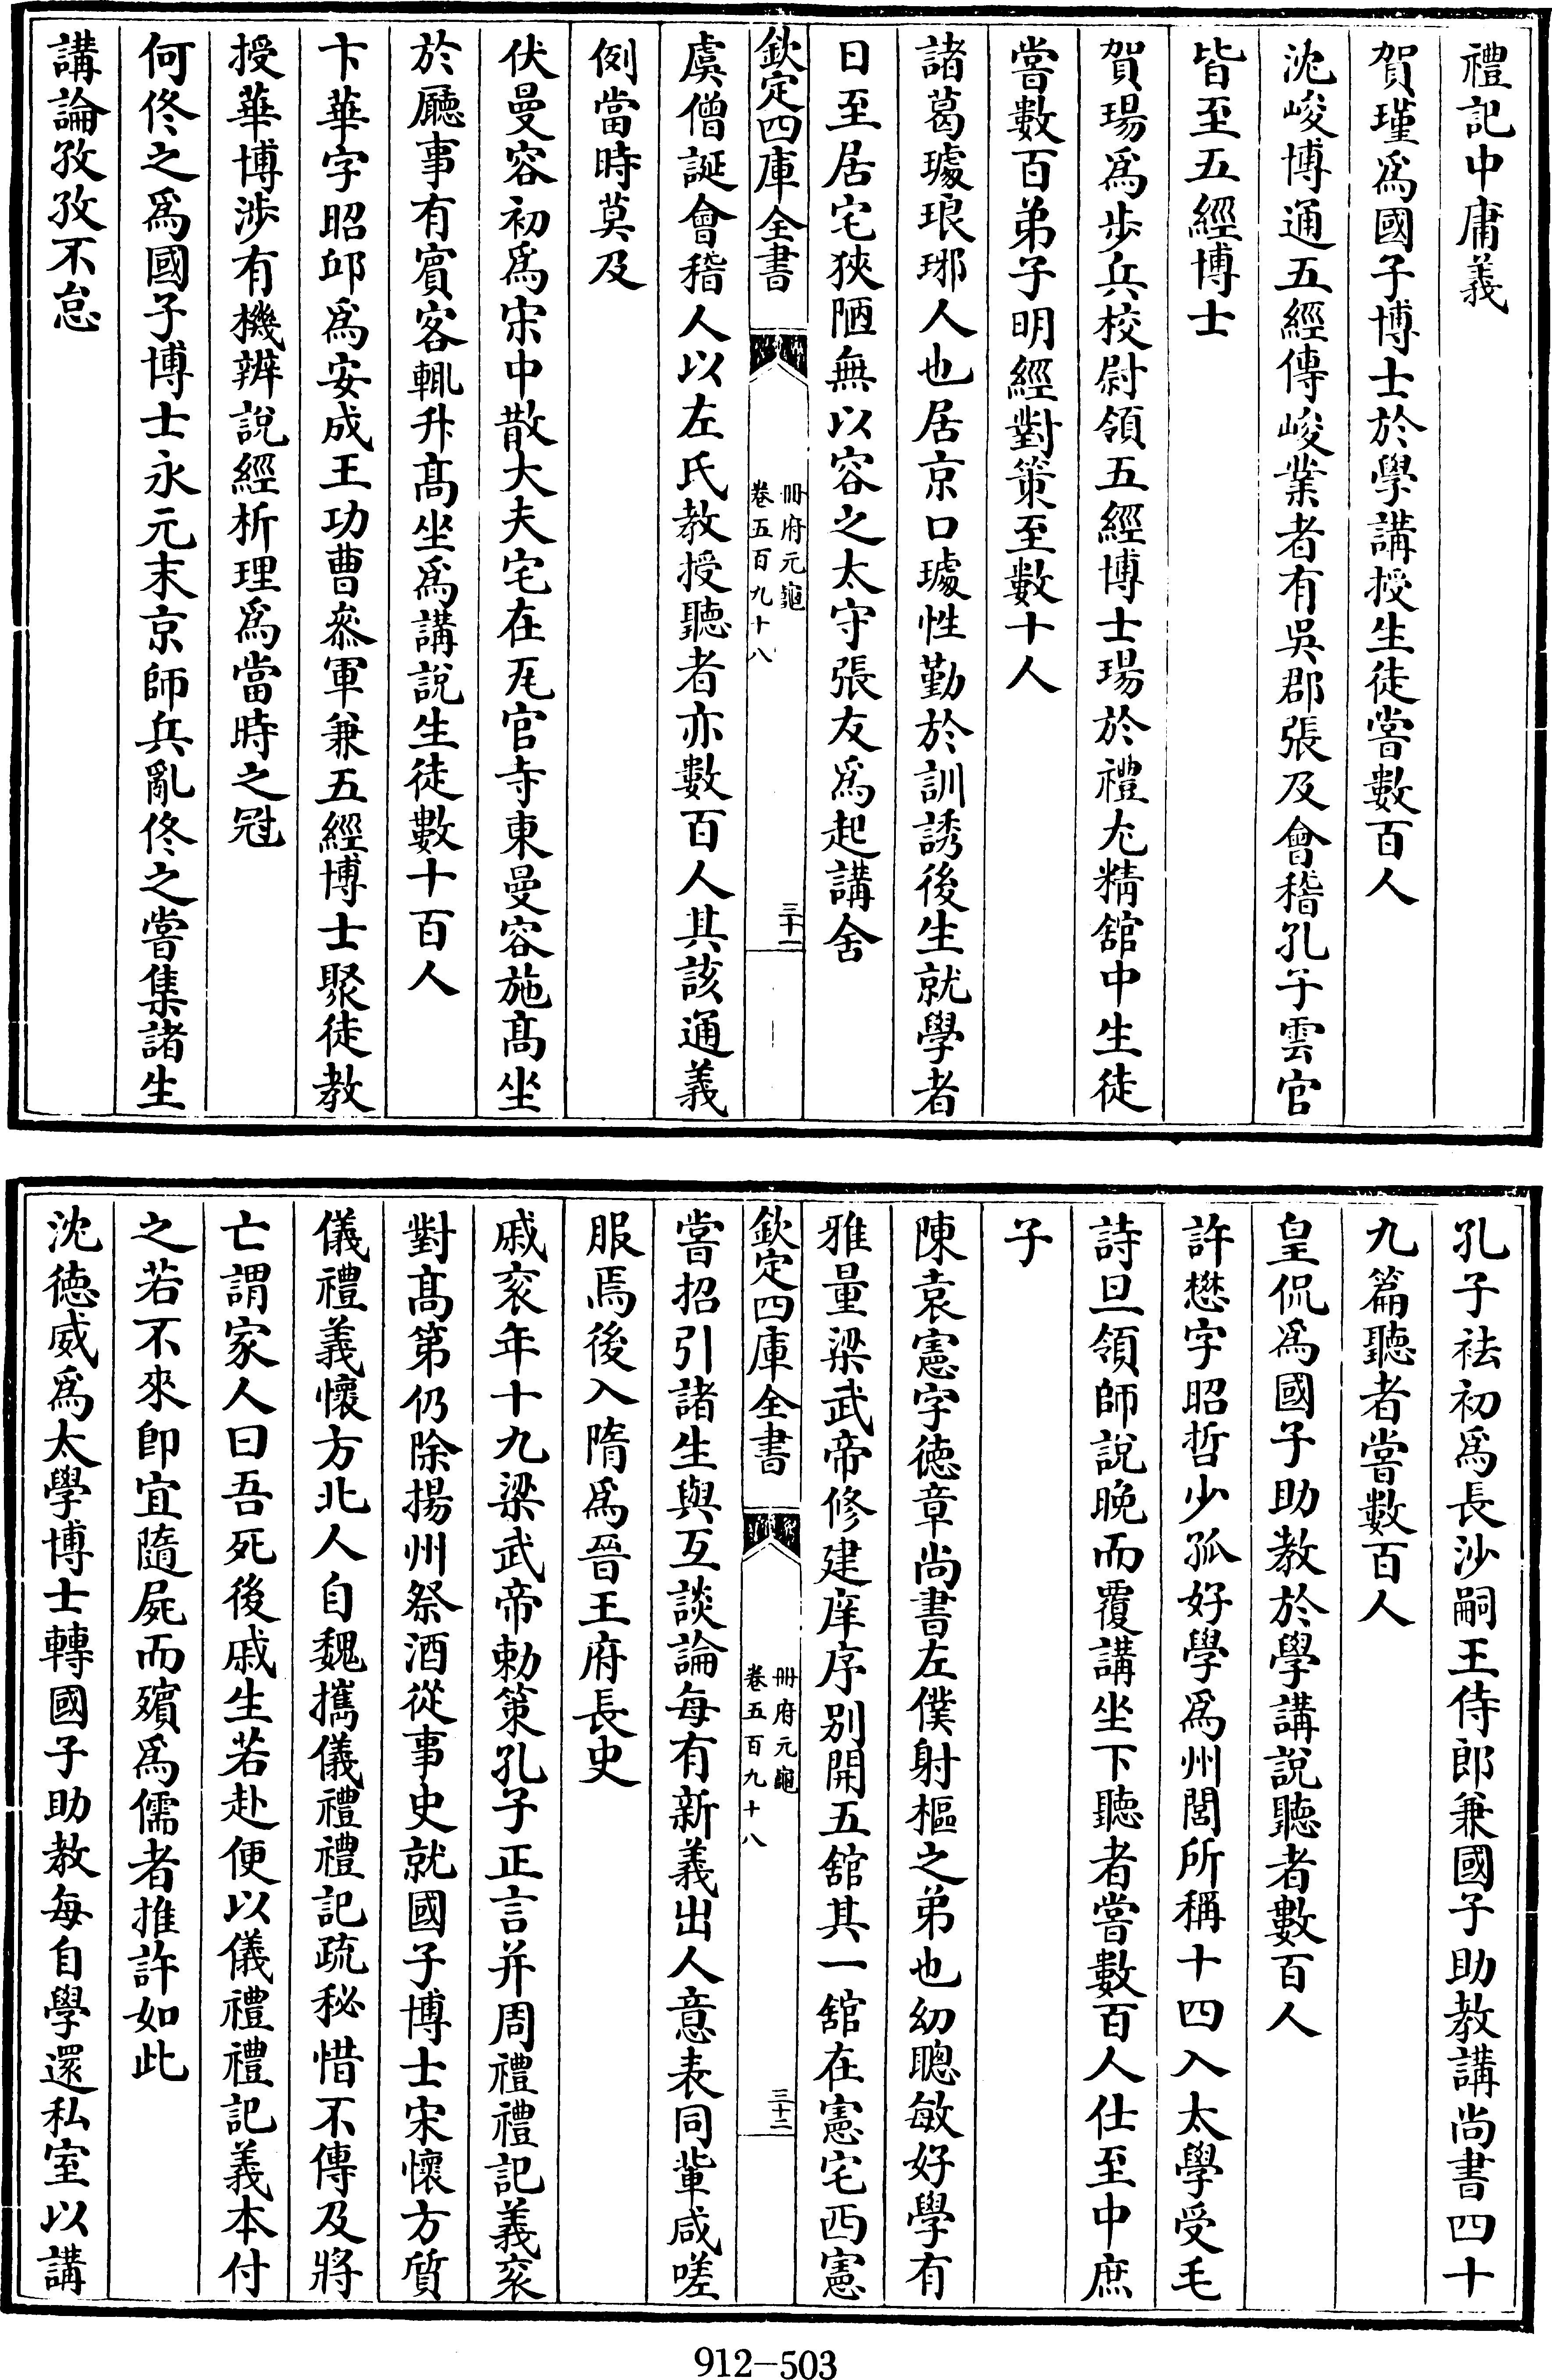 禮記中庸義
賀瑾爲國子博士於學講授生徒嘗數百人
沈峻博通五經傳峻業者有吳郡張及會稽孔子雲官
皆至五經博士
賀瑒爲步兵校尉領五經博士瑒於禮尤精舘中生徒
嘗數百弟子明經對策至數十人
諸葛璩琅琊人也居京口璩性勤於訓誘後生就學者
日至居宅狹陋無以容之太守張友爲起講舍
欽定四庫全書
冊府元龜
卷五百九十八
三十一
虞僧誕會稽人以左氏教授聽者亦數百人其該通義
例當時莫及
伏曼容初爲宋中散大夫宅在瓦官寺東曼容施髙坐
於廳事有賓客輒升髙坐爲講說生徒數十百人
卞華字昭邱爲安成王功曹叅軍兼五經博士聚徒教
授華博涉有機辨說經析理爲當時之冠
何佟之爲國子博士永元末京師兵亂佟之嘗集諸生
講論孜孜不怠
孔子袪初爲長沙嗣王侍郎兼國子助教講尚書四十
九篇聽者嘗數百人
皇侃爲國子助教於學講說聽者數百人
許懋字昭哲少孤好學爲州閭所稱十四入太學受毛
詩旦領師說晚而覆講坐下聽者嘗數百人仕至中庶
子
陳袁憲字徳章尚書左僕射樞之弟也幼聰敏好學有
雅量梁武帝修建庠序別開五舘其一舘在憲宅西憲
欽定四庫全書
冊府元龜
卷五百九十八
三十二
嘗招引諸生與互談論每有新義出人意表同輩咸嗟
服焉後入隋爲晉王府長史
戚衮年十九梁武帝勅策孔子正言并周禮禮記義衮
對髙第仍除揚州祭酒從事史就國子博士宋懷方質
儀禮義懷方北人自魏攜儀禮禮記疏秘惜不傳及將
亡謂家人曰吾死後戚生若赴便以儀禮禮記義本付
之若不來卽宜隨屍而殯爲儒者推許如此
沈徳威爲太學博士轉國子助教每自學還私室以講
912-503